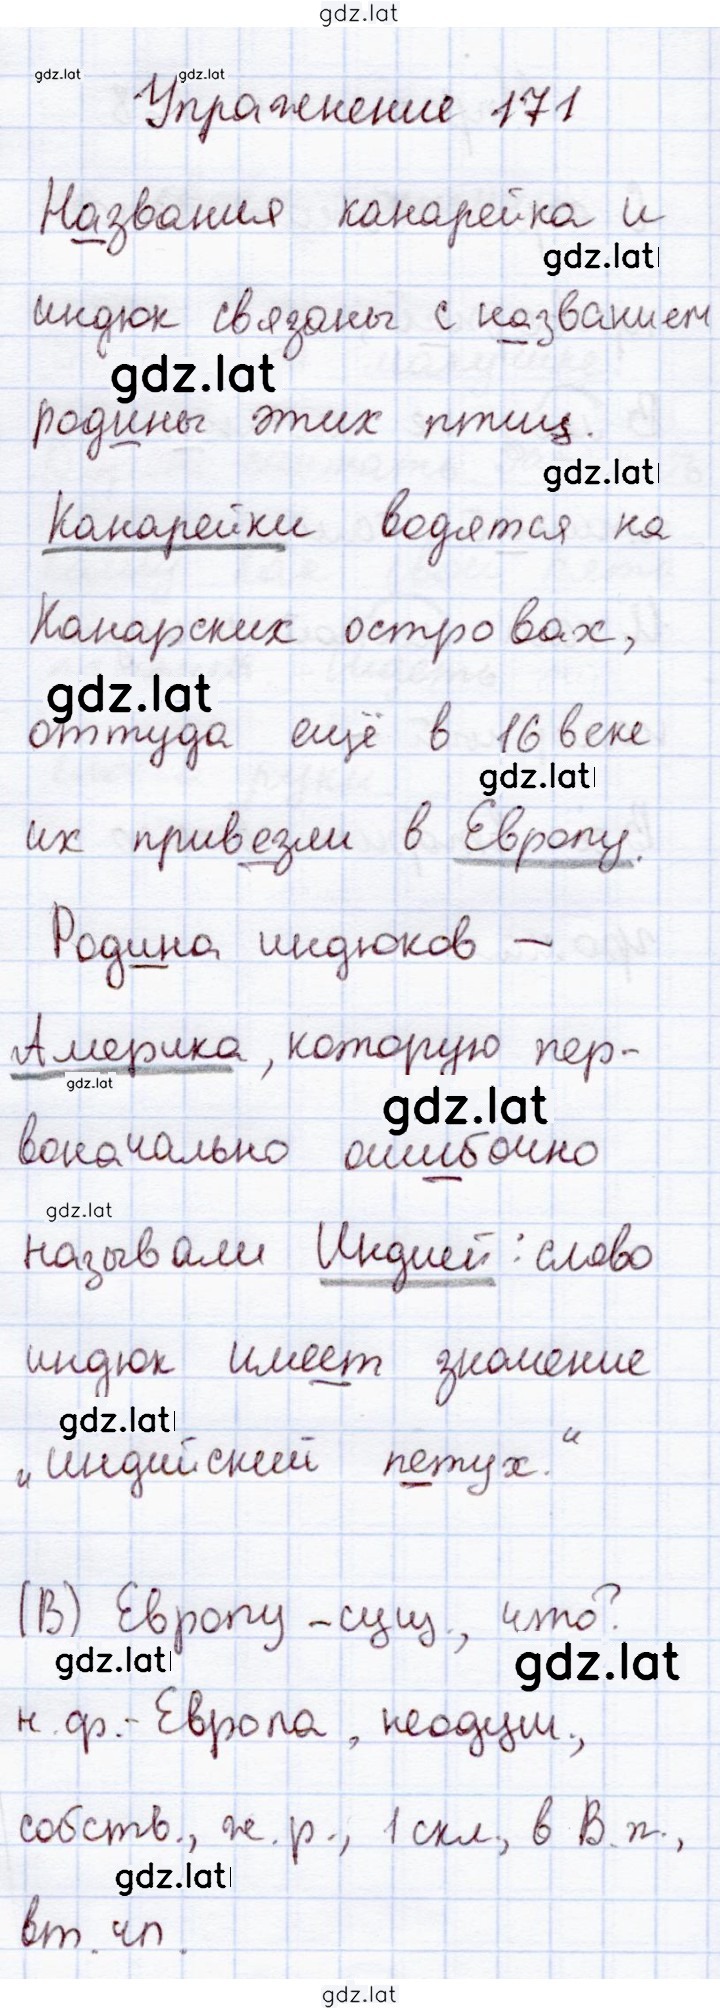 gdz.lat
gdz.lat gdz.lat
Упражнение 171
Названия канарейка и
gdz.lat
индюк связаны с названием
gdz.lat
родины этих птиц.
gdz.lat
Канарейки водятся на
Канарских островах,
gdz.lat
оттуда ещё в 16 веке
gdz.lat
их привезли в Европу.
Родина индюков –
Америка, которую пер-
gdz.lat
gdz.lat
воначально ошибочно
gdz.lat
называли Индией: слово
индюк имеет значение
gdz.lat
„индийский петух.“
(В) Европу – сущ., что?
gdz.lat
gdz.lat
н.ф.- Европа, неодуш.,
собств., ж.р., 1 скл., в В.п.,
gdz.lat
вт. чл.
gdz.lat